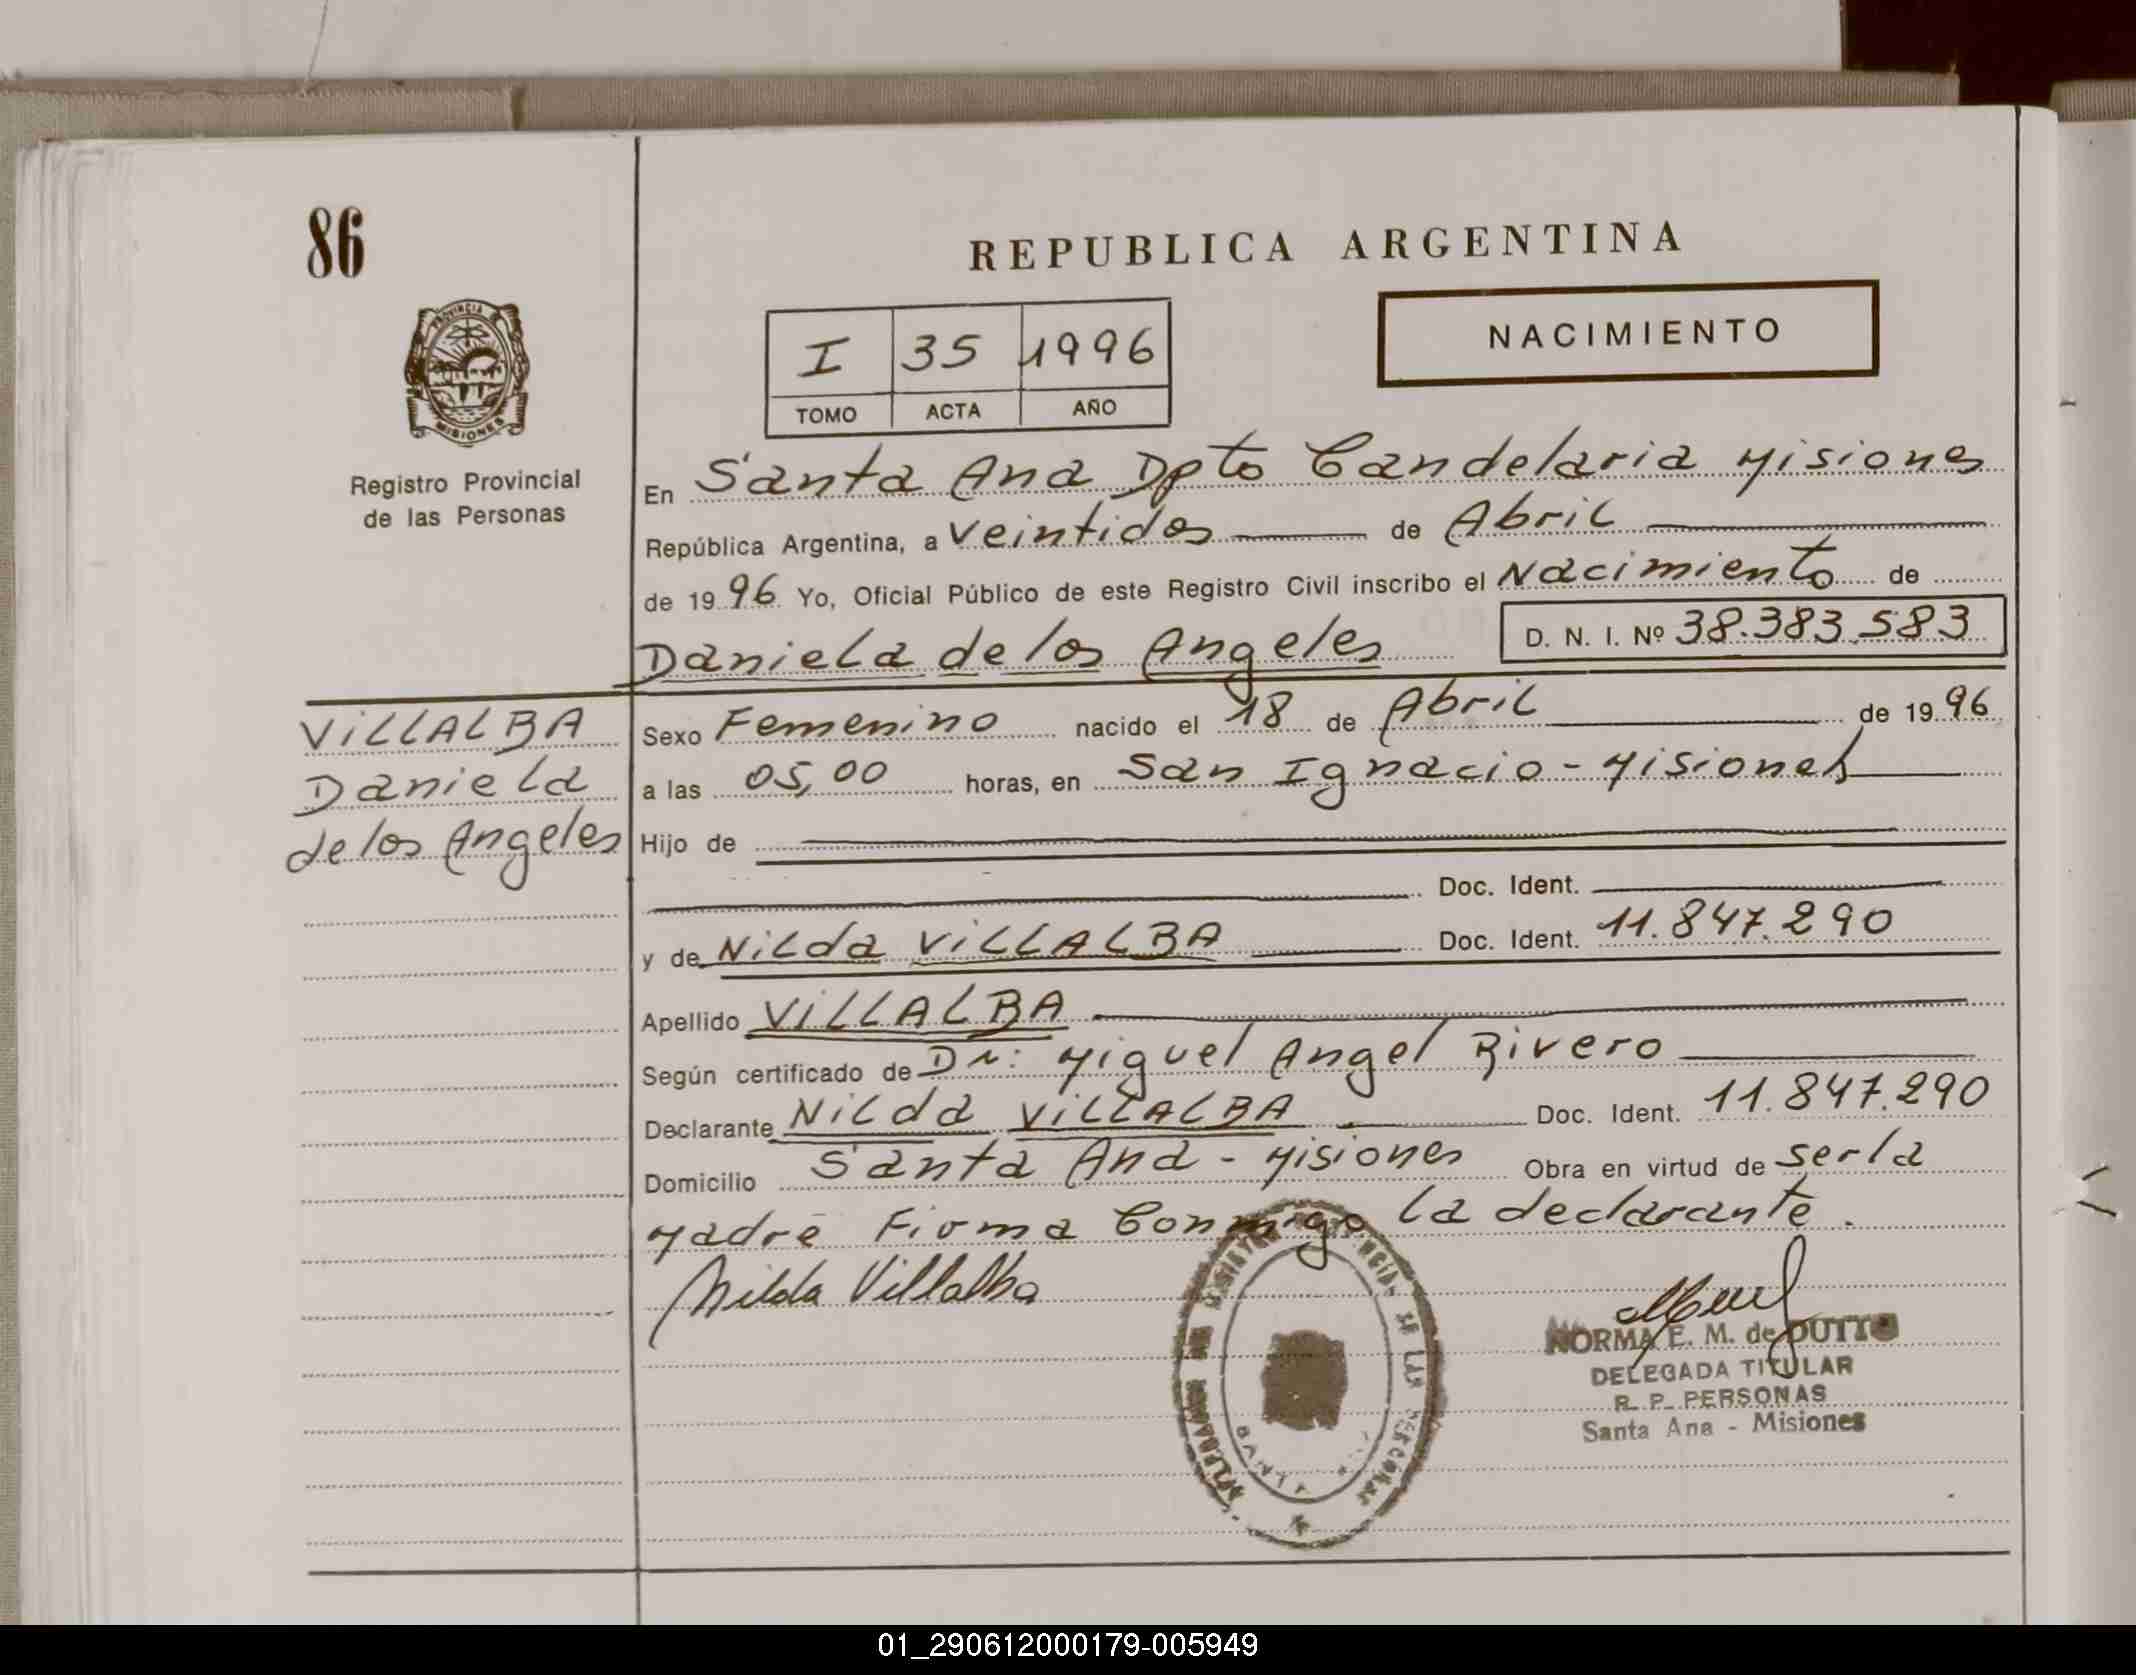 86
REPUBLICA ARGENTINA
NACIMIENTO
I 35 1996
TOMO ACTA AÑO
PROVINCIA DE
MISIONES
Registro Provincial
de las Personas
En Santa Ana Dpto Candelaria Misiones
República Argentina, a Veintidos de Abril
de 1996 Yo, Oficial Público de este Registro Civil inscribo el Nacimiento de
Daniela de los Angeles D. N. I. Nº 38.383.583
VILLALBA
Daniela
de los Angeles
Sexo Femenino nacido el 18 de Abril de 1996
a las 05,00 horas, en San Ignacio - Misiones
Hijo de
Doc. Ident.
y de Nilda VILLALBA Doc. Ident. 11.847.290
Apellido VILLALBA
Según certificado de Dr: Miguel Angel Rivero
Declarante Nilda VILLALBA Doc. Ident. 11.847.290
Domicilio Santa Ana - Misiones Obra en virtud de serla
Madre Firma Conmigo la declarante.
Nilda Villalba
NORMA E. M. de DUTTO
DELEGADA TITULAR
R. P. PERSONAS
Santa Ana - Misiones
01_290612000179-005949